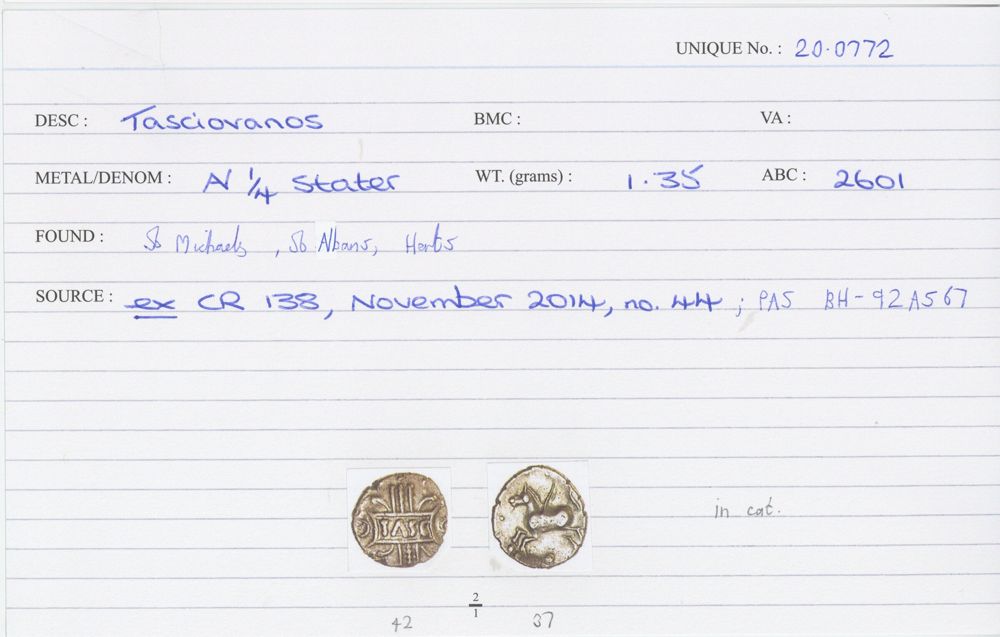 UNIQUE No. : 20.0772
DESC : Tasciovanos BMC : VA :
METAL/DENOM : N 1/4 Stater WT. (grams) : 1.35 ABC : 2601
FOUND : St Michaels, St Albans, Herts
SOURCE : ex CR 138, November 2014, no. 44 ; PAS BH-92A567
TASC
in cat.
2/1
42 37